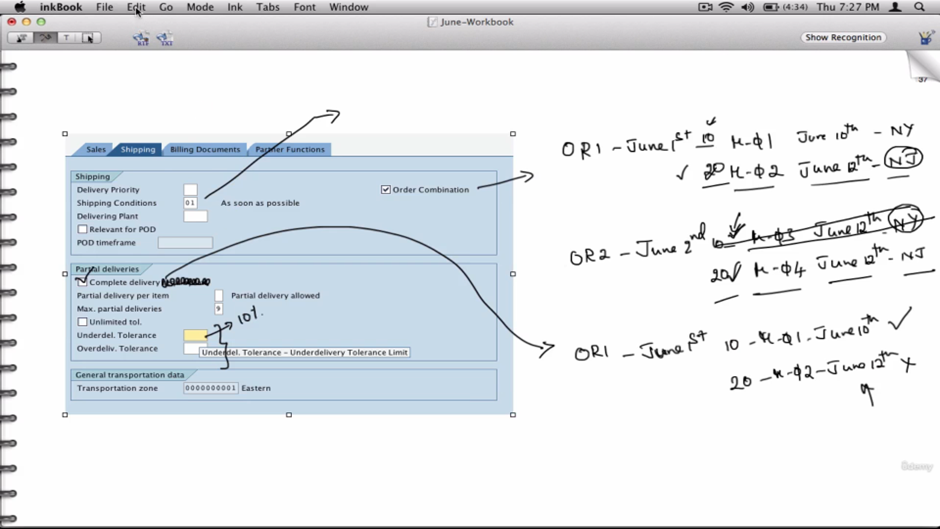 inkBook File Edit Go Mode Ink Tabs Font Window (4:34) Thu 7:27 PM
June-Workbook
T Show Recognition
37
Sales Shipping Billing Documents Partner Functions
Shipping
Delivery Priority
Order Combination
Shipping Conditions 01 As soon as possible
Delivering Plant
Relevant for POD
POD timeframe
Partial deliveries
Complete delivery
Partial delivery per item Partial delivery allowed
Max. partial deliveries 9
Unlimited tol.
Underdel. Tolerance
10%
Overdeliv. Tolerance
Underdel. Tolerance - Underdelivery Tolerance Limit
General transportation data
Transportation zone 0000000001 Eastern
OR1 - June 1st 10 M-01 June 10th - NY
20 M-02 June 12th - NJ
OR2 - June 2nd 10 M-03 June 12th - NY
20 M-04 June 12th - NJ
OR1 - June 1st 10 - M-01 - June 10th
20 - M-02 - June 12th
Udemy